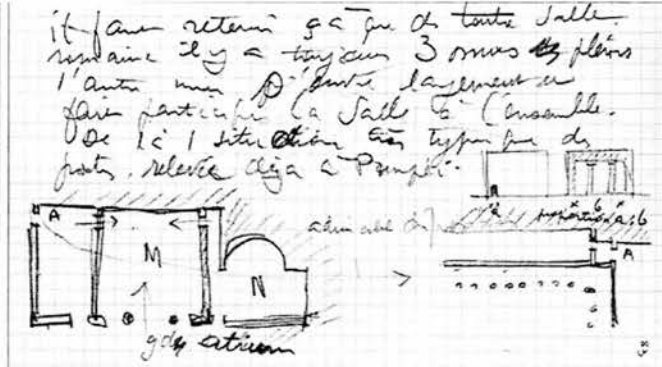 il faut retenir ça que ds toute salle
romaine il y a toujours 3 murs pleins
l'autre mur s'ouvre largement et
fait participer la salle à l'ensemble.
De là 1 situation très typique des
portes relevée déjà à Pompéi.
A
M
N
A
gd atrium